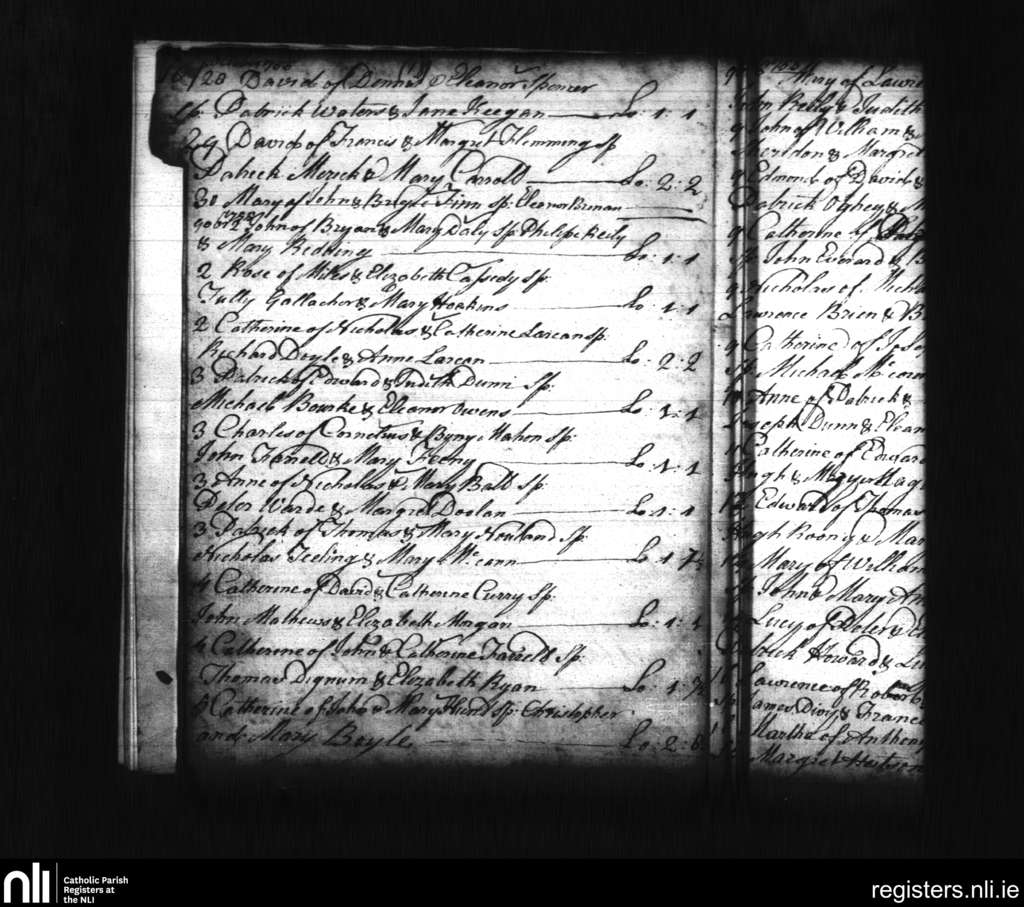 20 David of Dennis & Eleanor Spencer
sp: Patrick Waters & Jane Keegan £o: 1: 1
29 David of Francis & Margret Flemming sp
Patrick Merick & Mary Carroll £o: 2: 2
30 Mary of John & Brigte Finn sp: Eleanor Brenan
2 John of Bryan & Mary Daly Sp Philipe Reily
& Mary Redding £o: 1: 1
2 Rose of Miles & Elizabeth Cassedy sp:
Tully Gallacher & Mary Hoskins £o: 1: 1
2 Catherine of Nicholas & Catherine Larcan sp:
Richard Doyle & Anne Larcan £o: 2: 2
3 Patrick of Edward & Judith Dunn Sp:
Michael Bourke & Eleanor Owens £o: 1: 1
3 Charles of Cornelius & Mahon Sp:
John & Mary Feeny £o: 1: 1
3 Anne of Nicholas & Mary Ball Sp:
Peter Warde & Margret Doolan £o: 1: 1
3 Patrick of Thomas & Mary Howland Sp:
Nicholas Teeling & Mary McCann £o 1 7½
4 Catherine of David & Catherine Curry Sp:
John Mathews & Elizabeth Morgan £o: 1: 1
4 Catherine of John & Catherine Farrell Sp:
Thomas Dignum & Elizabeth Ryan £o: 1: 7½
Catherine of John & Mary Hund Sp: Christopher
and Mary Boyle £o: 2: 6
9 Mary of Lawre
John Reily & Judith
9 John of William &
Sheridon & Margret
9 Edmond of David &
Patrick Oghey & M
9 Catherine of
Sp John Everard & B
9 Nicholas of Nicho
Lawrence Brien & B
9 Catherine of Jose
Sp Michael McCorm
Anne of Patrick &
Joseph Dunn & Elean
Catherine of Edward
Hugh & Mary Mag
12 Edward of Thomas
Hugh Roony & Mar
Mary of William
Sp John & Mary An
Lucy of Peter & E
Patrick Howard & Lu
Lawrence of Robert
James & France
Martha of Anthony
Margret
nli
Catholic Parish
Registers at
the NLI
registers.nli.ie